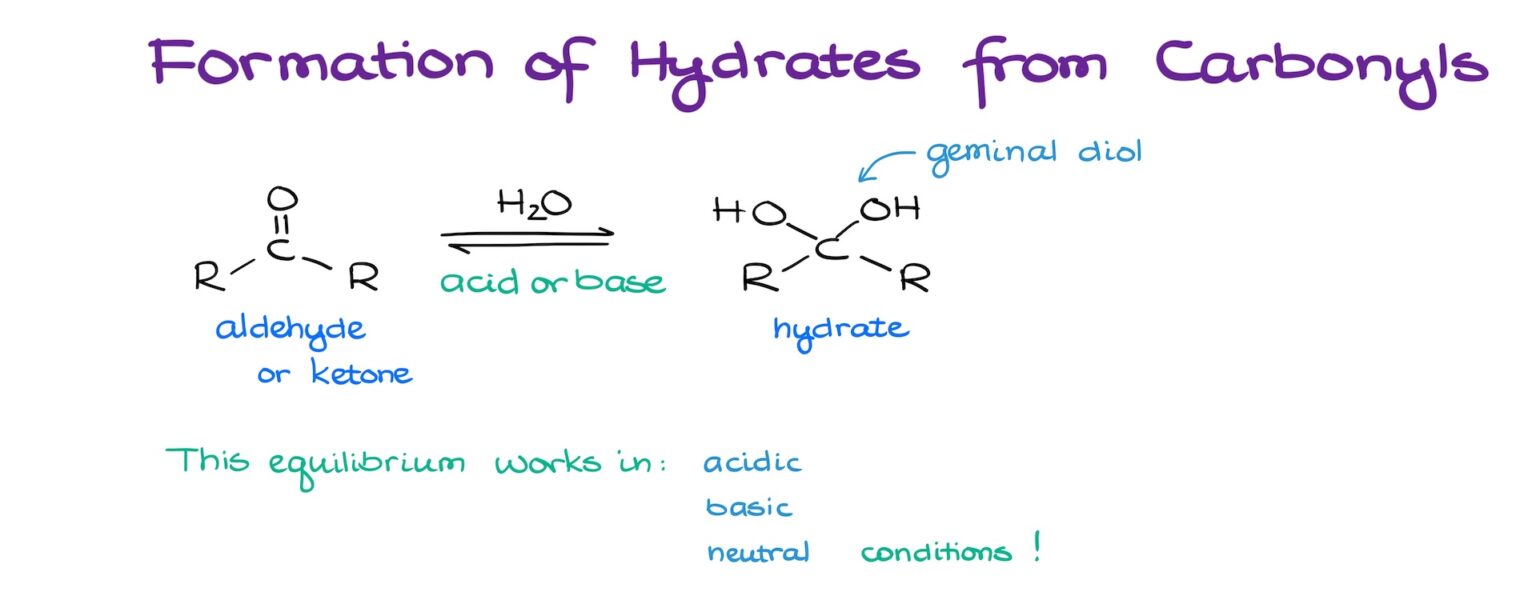 Formation of Hydrates from Carbonyls
geminal diol
O
C
R R
H₂O
acid or base
HO OH
C
R R
aldehyde
or ketone
hydrate
This equilibrium works in: acidic
basic
neutral conditions!